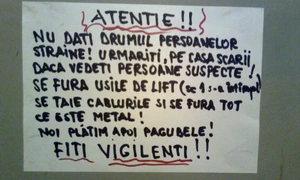 ATENTIE!!
NU DATI DRUMUL PERSOANELOR
STRAINE! URMARITI, PE CASA SCARII
DACA VEDETI PERSOANE SUSPECTE!
SE FURA USILE DE LIFT (SC 1 s-a intimplat)
SE TAIE CABLURILE SI SE FURA TOT
CE ESTE METAL!
NOI PLATIM APOI PAGUBELE!
FITI VIGILENTI!!